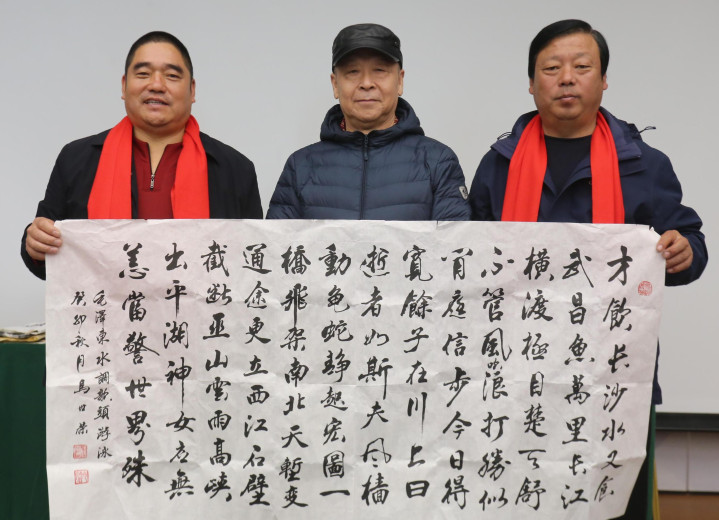 才飲长沙水又食
武昌魚萬里长江
橫渡極目楚天舒
不管風吹浪打勝似
閒庭信步今日得
寬餘子在川上曰
逝者如斯夫風檣
動龜蛇靜起宏圖一
橋飛架南北天塹變
通途更立西江石壁
截斷巫山雲雨高峽
出平湖神女應無
恙當驚世界殊
毛澤東水調歌頭游泳
癸卯秋月馬榮